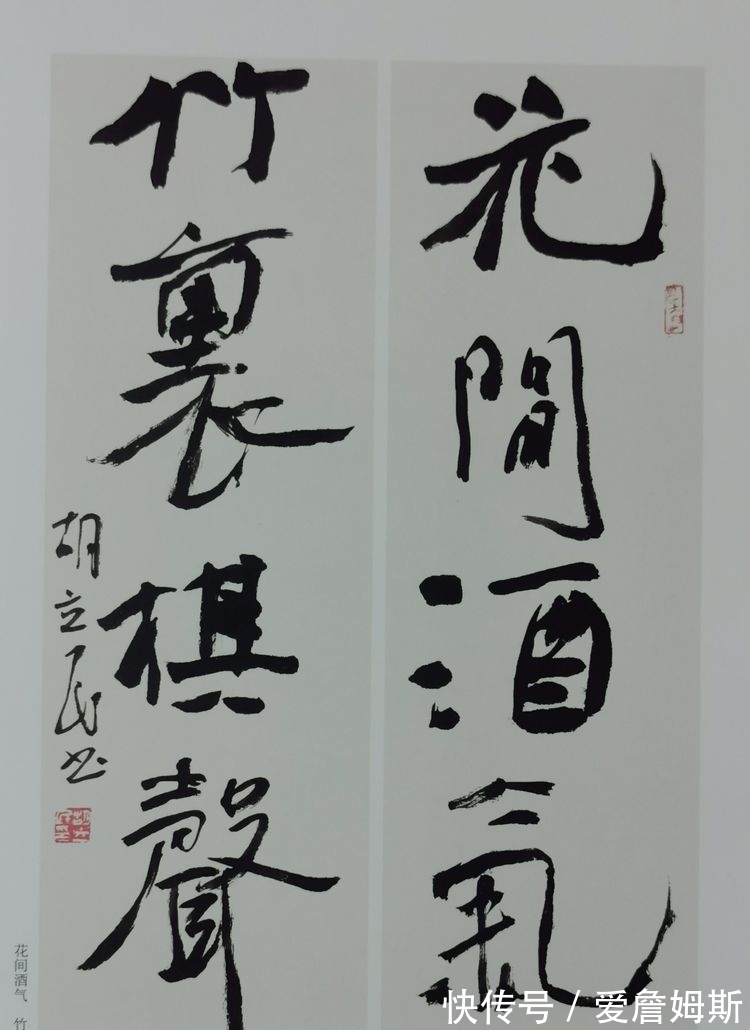 花間酒氣
竹裏棋聲
胡立民书
花间酒气 竹
快传号 / 爱詹姆斯